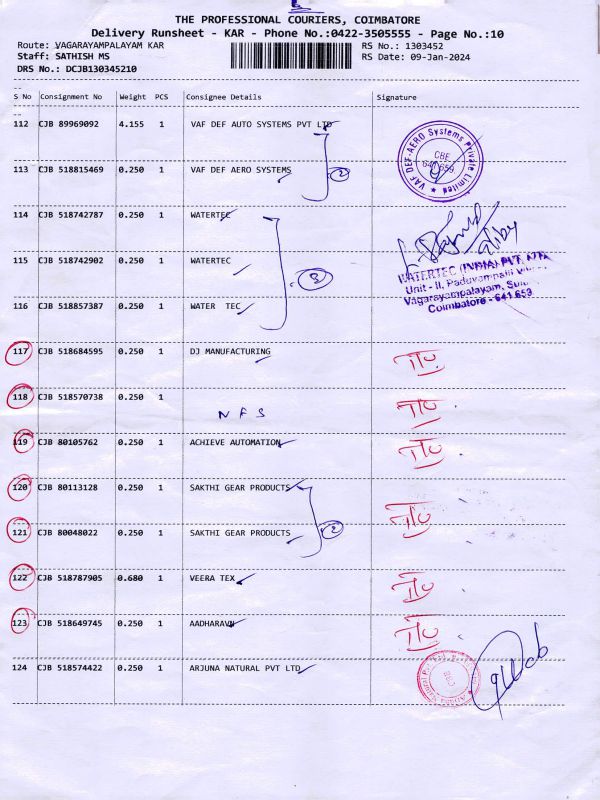 THE PROFESSIONAL COURIERS, COIMBATORE
Delivery Runsheet - KAR - Phone No.:0422-3505555 - Page No.:10
Route: VAGARAYAMPALAYAM KAR RS No.: 1303452
Staff: SATHISH MS RS Date: 09-Jan-2024
DRS No.: DCJB130345210
S No Consignment No Weight PCS Consignee Details Signature
112 CJB 89969092 4.155 1 VAF DEF AUTO SYSTEMS PVT LTD
VAF DEF-AERO Systems Private Limited
CBE
641 659
113 CJB 518815469 0.250 1 VAF DEF AERO SYSTEMS
2
114 CJB 518742787 0.250 1 WATERTEC
115 CJB 518742902 0.250 1 WATERTEC
3
WATERTEC (INDIA) PVT. LTD.
Unit - II, Paduvampalli
Vagarayampalayam,
Coimbatore - 641 659
116 CJB 518857387 0.250 1 WATER TEC
117 CJB 518684595 0.250 1 DJ MANUFACTURING
118 CJB 518570738 0.250 1
N F S
119 CJB 80105762 0.250 1 ACHIEVE AUTOMATION
120 CJB 80113128 0.250 1 SAKTHI GEAR PRODUCTS
2
121 CJB 80048022 0.250 1 SAKTHI GEAR PRODUCTS
122 CJB 518787905 0.680 1 VEERA TEX
123 CJB 518649745 0.250 1 AADHARAVA
124 CJB 518574422 0.250 1 ARJUNA NATURAL PVT LTD